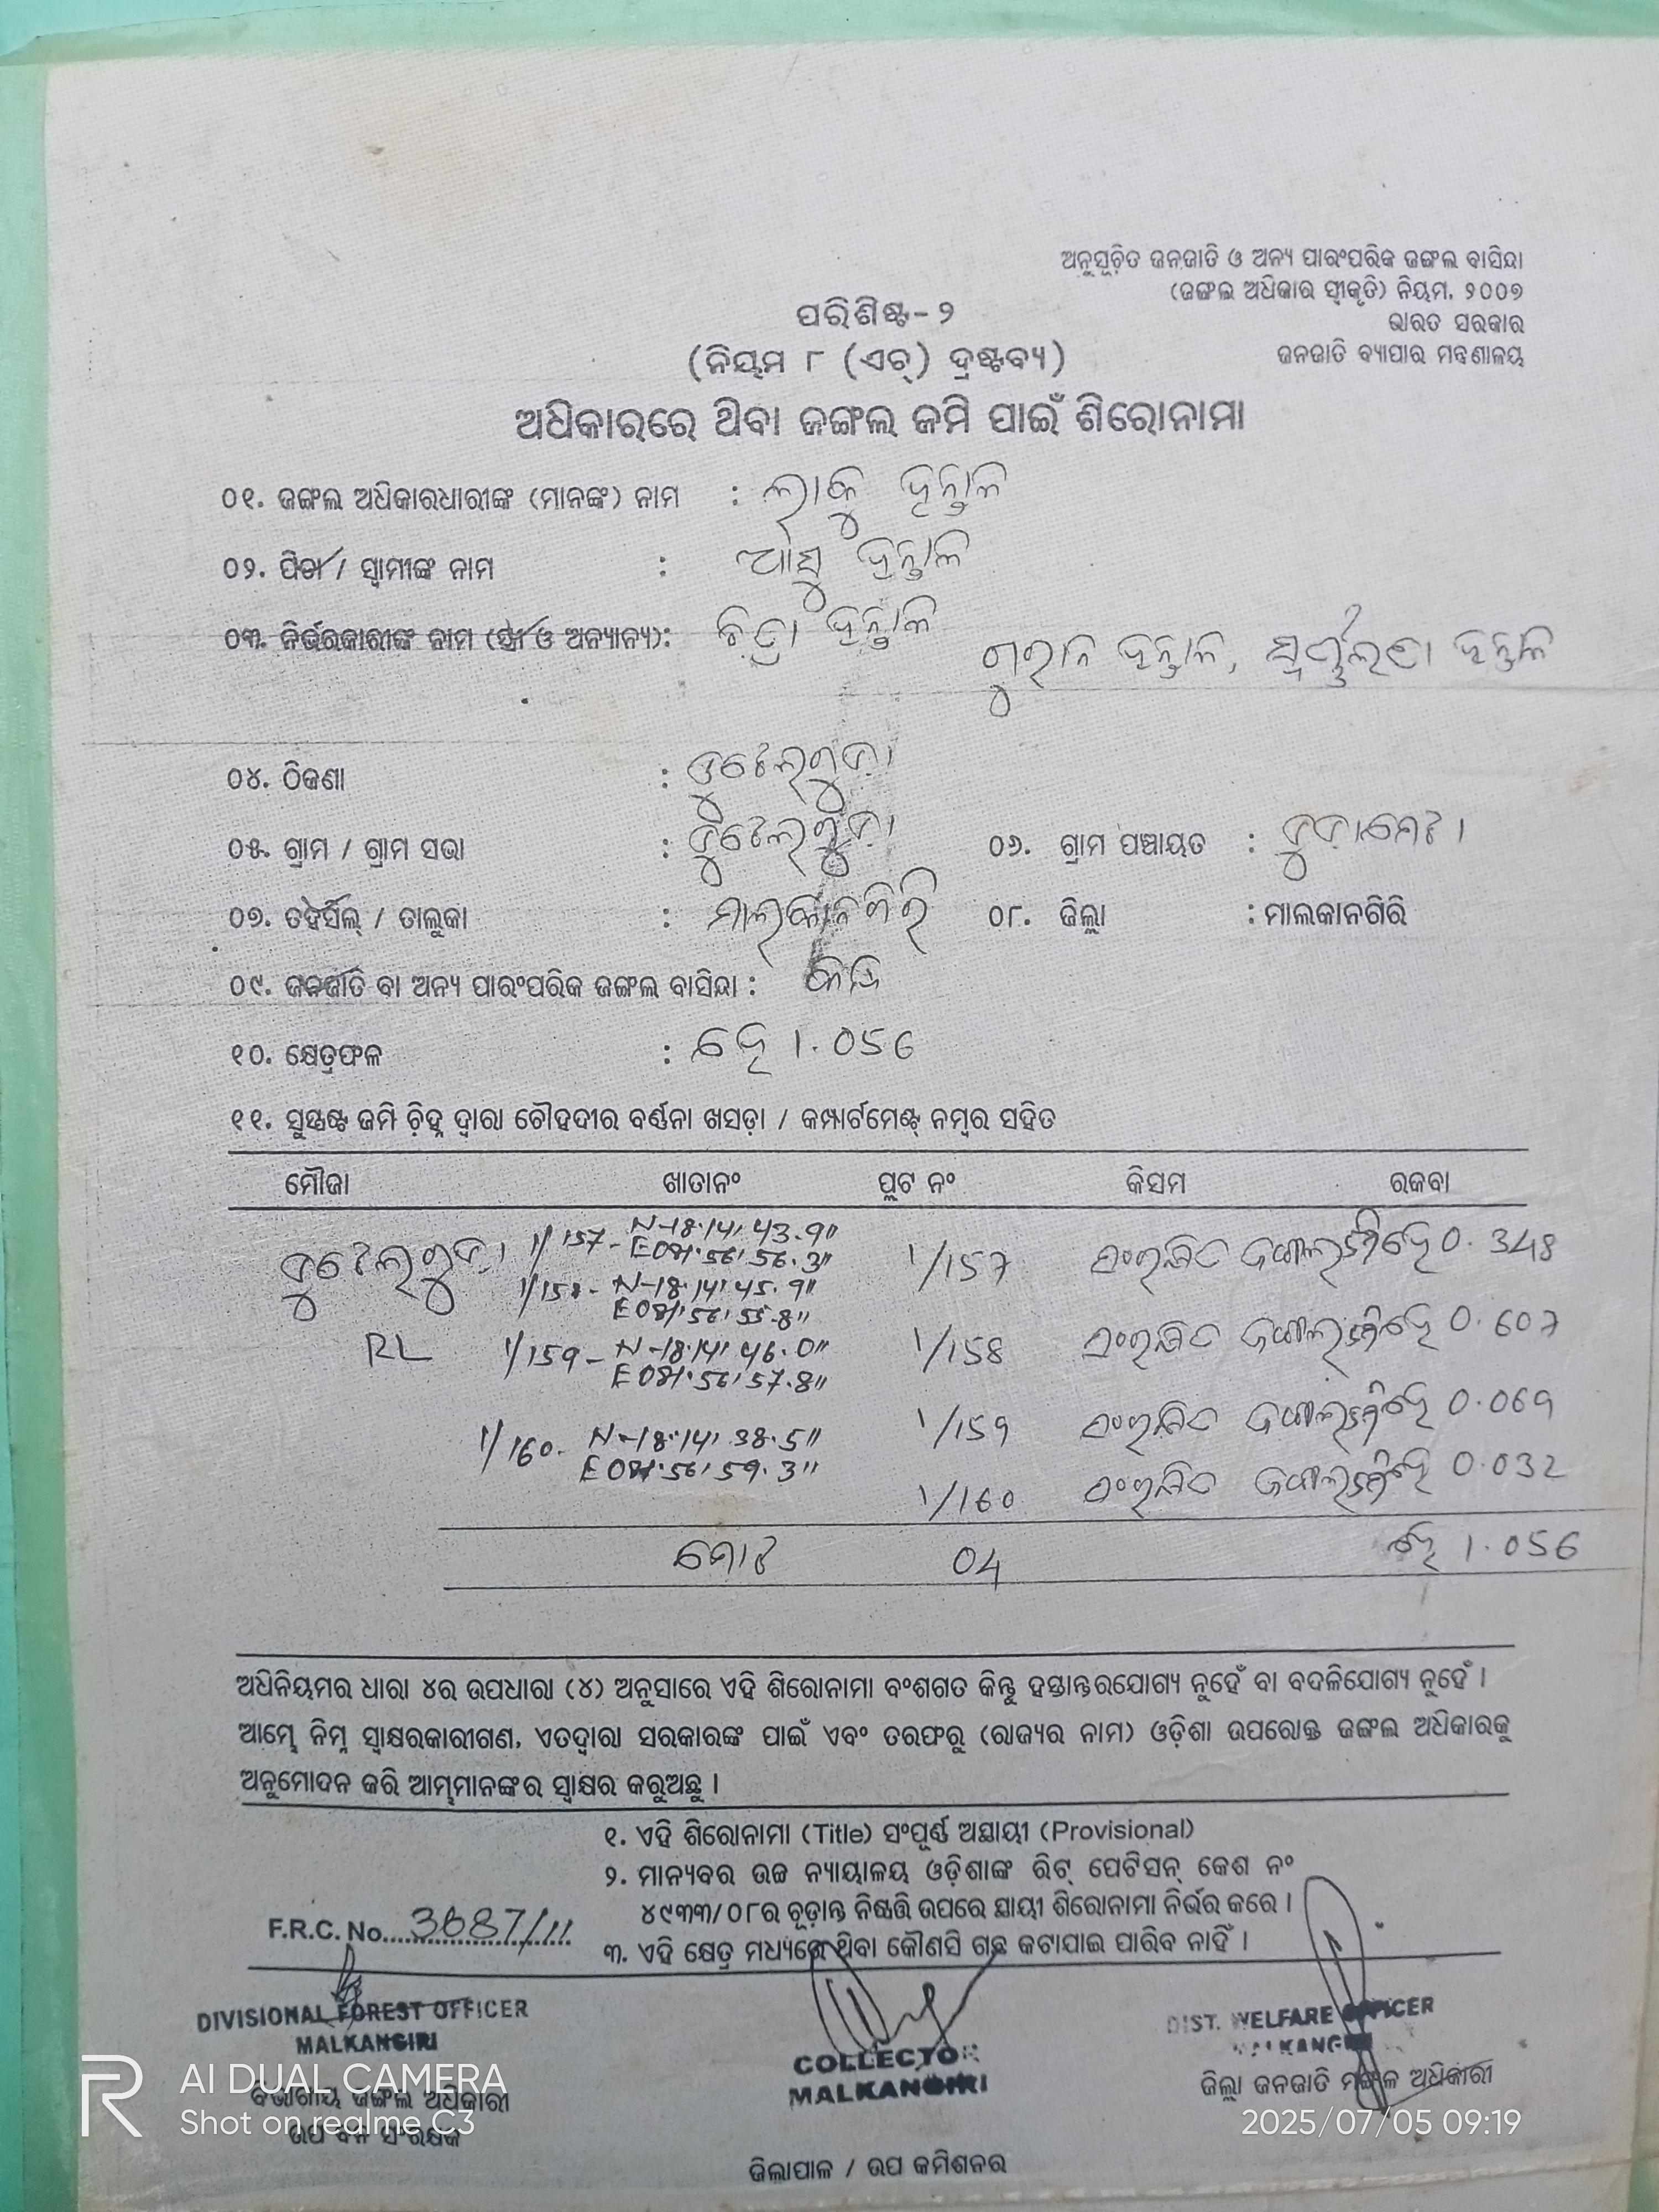 ଅନୁସୂଚିତ ଜନଜାତି ଓ ଅନ୍ୟ ପାରଂପରିକ ଜଙ୍ଗଲ ବାସିନ୍ଦା
(ଜଙ୍ଗଲ ଅଧିକାର ସ୍ୱୀକୃତି) ନିୟମ, ୨୦୦୭
ଭାରତ ସରକାର
ଜନଜାତି ବ୍ୟାପାର ମନ୍ତ୍ରଣାଳୟ
ପରିଶିଷ୍ଟ-୨
(ନିୟମ ୮ (ଏଚ୍) ଦ୍ରଷ୍ଟବ୍ୟ)
ଅଧିକାରରେ ଥିବା ଜଙ୍ଗଲ ଜମି ପାଇଁ ଶିରୋନାମା
୦୧. ଜଙ୍ଗଲ ଅଧିକାରଧାରୀଙ୍କ (ମାନଙ୍କ) ନାମ :
୦୨. ପିତା / ସ୍ୱାମୀଙ୍କ ନାମ :
୦୩. ନିର୍ଭରକାରୀଙ୍କ ନାମ (ସ୍ତ୍ରୀ ଓ ଅନ୍ୟାନ୍ୟ):
୦୪. ଠିକଣା :
୦୫. ଗ୍ରାମ / ଗ୍ରାମ ସଭା : ୦୬. ଗ୍ରାମ ପଞ୍ଚାୟତ :
୦୭. ତହସିଲ୍ / ତାଲୁକା : ମାଲକାନଗିରି ୦୮. ଜିଲ୍ଲା : ମାଲକାନଗିରି
୦୯. ଜନଜାତି ବା ଅନ୍ୟ ପାରଂପରିକ ଜଙ୍ଗଲ ବାସିନ୍ଦା :
୧୦. କ୍ଷେତ୍ରଫଳ : ହେ 1.056
୧୧. ସୁସ୍ପଷ୍ଟ ଜମି ଚିହ୍ନ ଦ୍ୱାରା ଚୌହଦୀର ବର୍ଣ୍ଣନା ଖସଡ଼ା / କମ୍ପାର୍ଟମେଣ୍ଟ୍ ନମ୍ବର ସହିତ
ମୌଜା ଖାତାନଂ ପ୍ଲଟ ନଂ କିସମ ରକବା
1/157- N-18.14' 43.9" 1/157 ହେ 0.348
E081.56' 56.3"
1/158- N-18.14' 45.9"
E081.56' 55.8"
RL 1/159- N-18.14' 46.0" 1/158 ହେ 0.607
E081.56' 57.8"
1/160- N-18.14' 38.5" 1/159 ହେ 0.069
E081.56' 59.3"
1/160 ହେ 0.032
ମୋଟ 04 ହେ 1.056
ଅଧିନିୟମର ଧାରା ୪ର ଉପଧାରା (୪) ଅନୁସାରେ ଏହି ଶିରୋନାମା ବଂଶଗତ କିନ୍ତୁ ହସ୍ତାନ୍ତରଯୋଗ୍ୟ ନୁହେଁ ବା ବଦଳିଯୋଗ୍ୟ ନୁହେଁ ।
ଆମ୍ଭେ ନିମ୍ନ ସ୍ୱାକ୍ଷରକାରୀଗଣ, ଏତଦ୍ୱାରା ସରକାରଙ୍କ ପାଇଁ ଏବଂ ତରଫରୁ (ରାଜ୍ୟର ନାମ) ଓଡ଼ିଶା ଉପରୋକ୍ତ ଜଙ୍ଗଲ ଅଧିକାରକୁ
ଅନୁମୋଦନ କରି ଆମ୍ଭମାନଙ୍କର ସ୍ୱାକ୍ଷର କରୁଅଛୁ ।
୧. ଏହି ଶିରୋନାମା (Title) ସଂପୂର୍ଣ୍ଣ ଅସ୍ଥାୟୀ (Provisional)
୨. ମାନ୍ୟବର ଉଚ୍ଚ ନ୍ୟାୟାଳୟ ଓଡ଼ିଶାଙ୍କ ରିଟ୍ ପେଟିସନ୍ କେଶ ନଂ
୪୯୩୩/୦୮ର ଚୂଡ଼ାନ୍ତ ନିଷ୍ପତ୍ତି ଉପରେ ସ୍ଥାୟୀ ଶିରୋନାମା ନିର୍ଭର କରେ ।
F.R.C. No....3687/11
୩. ଏହି କ୍ଷେତ୍ର ମଧ୍ୟରେ ଥିବା କୌଣସି ଗଛ କଟାଯାଇ ପାରିବ ନାହିଁ ।
DIVISIONAL FOREST OFFICER
MALKANGIRI
ବିଭାଗୀୟ ଜଙ୍ଗଲ ଅଧିକାରୀ
ଉପ ବନ ସଂରକ୍ଷକ
COLLECTOR
MALKANGIRI
ଜିଲାପାଳ / ଉପ କମିଶନର
DIST. WELFARE OFFICER
MALKANGIRI
ଜିଲ୍ଲା ଜନଜାତି ମଙ୍ଗଳ ଅଧିକାରୀ
AI DUAL CAMERA
Shot on realme C3
2025/07/05 09:19